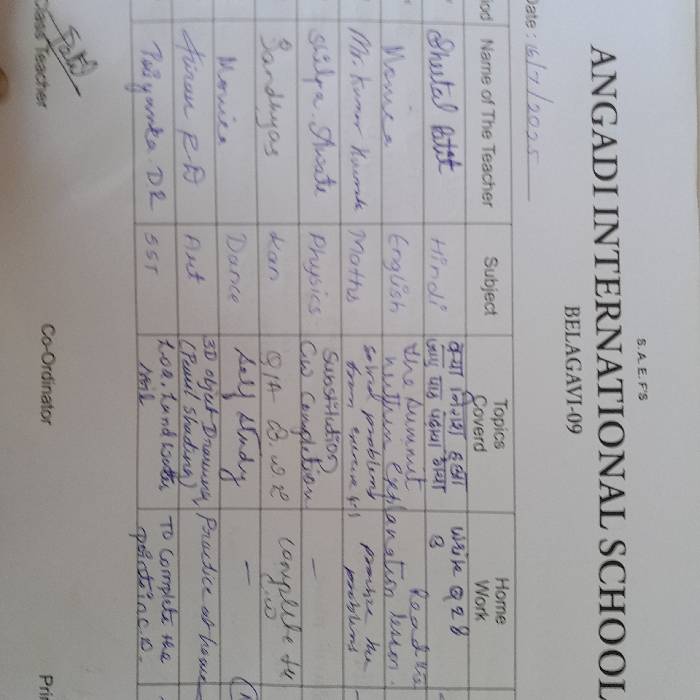 S.A.E.F'S
ANGADI INTERNATIONAL SCHOOL
BELAGAVI-09
Date : 16/7/2025
iod Name of The Teacher Subject Topics Coverd Home Work
Sheetal Patil Hindi क्या निराश हुआ जाए पाठ पढ़ाया गया write Q & B
Monica English The Summit within explanation Read the lesson.
Mr. Kumar Maths solved problems from exercise practice the problems
Shilpa Physics Substitution C.W completion —
Sandhya S Kan Q/A C.W complete the C.W
Monica Dance Self Study —
Kiran R.D Art 3D object Drawing (Pencil Shading) Practice at home
Priyanka. DR SST L-02, Land water soil TO Complete the points in C.B.
Class Teacher Co-Ordinator Pri